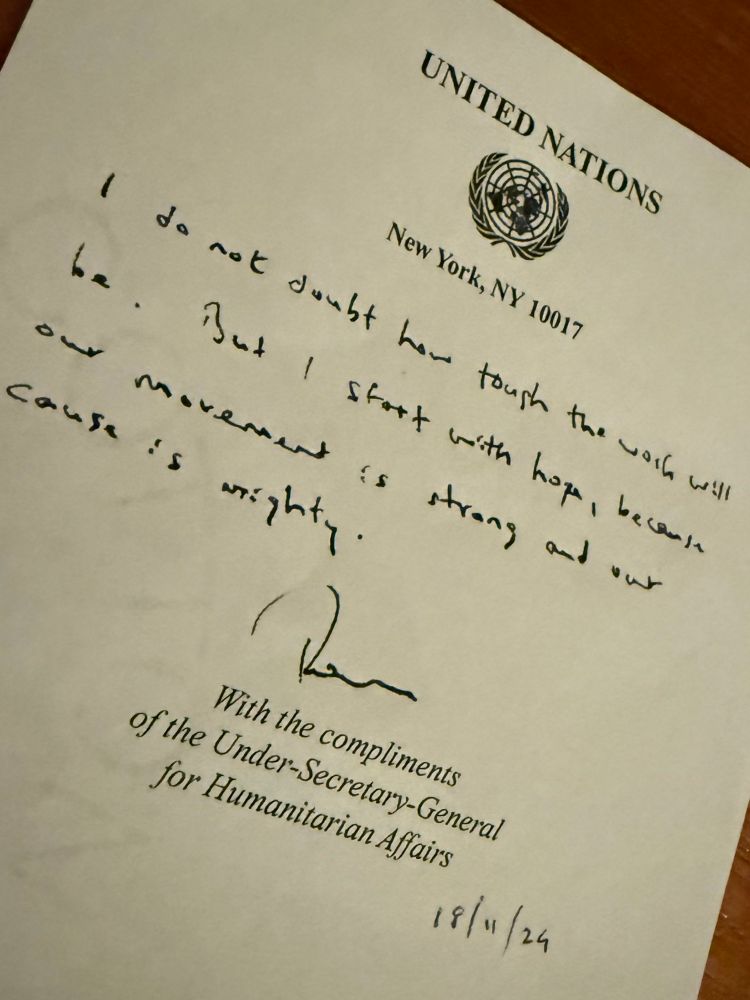 UNITED NATIONS
New York, NY 10017
I do not doubt how tough the work will
be. But I start with hope, because
our movement is strong and our
cause is mighty.
With the compliments
of the Under-Secretary-General
for Humanitarian Affairs
18/11/24